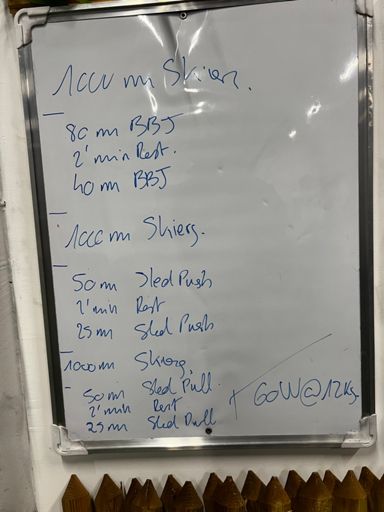 1000 m Skierg.
80 m BBJ
2' min Rest.
40 m BBJ
1000 m Skierg.
50 m Sled Push
2' min Rest
25 m Sled Push
1000 m Skierg
50 m Sled Pull.
2' min Rest
25 m Sled Pull
+ 60W@12Kg